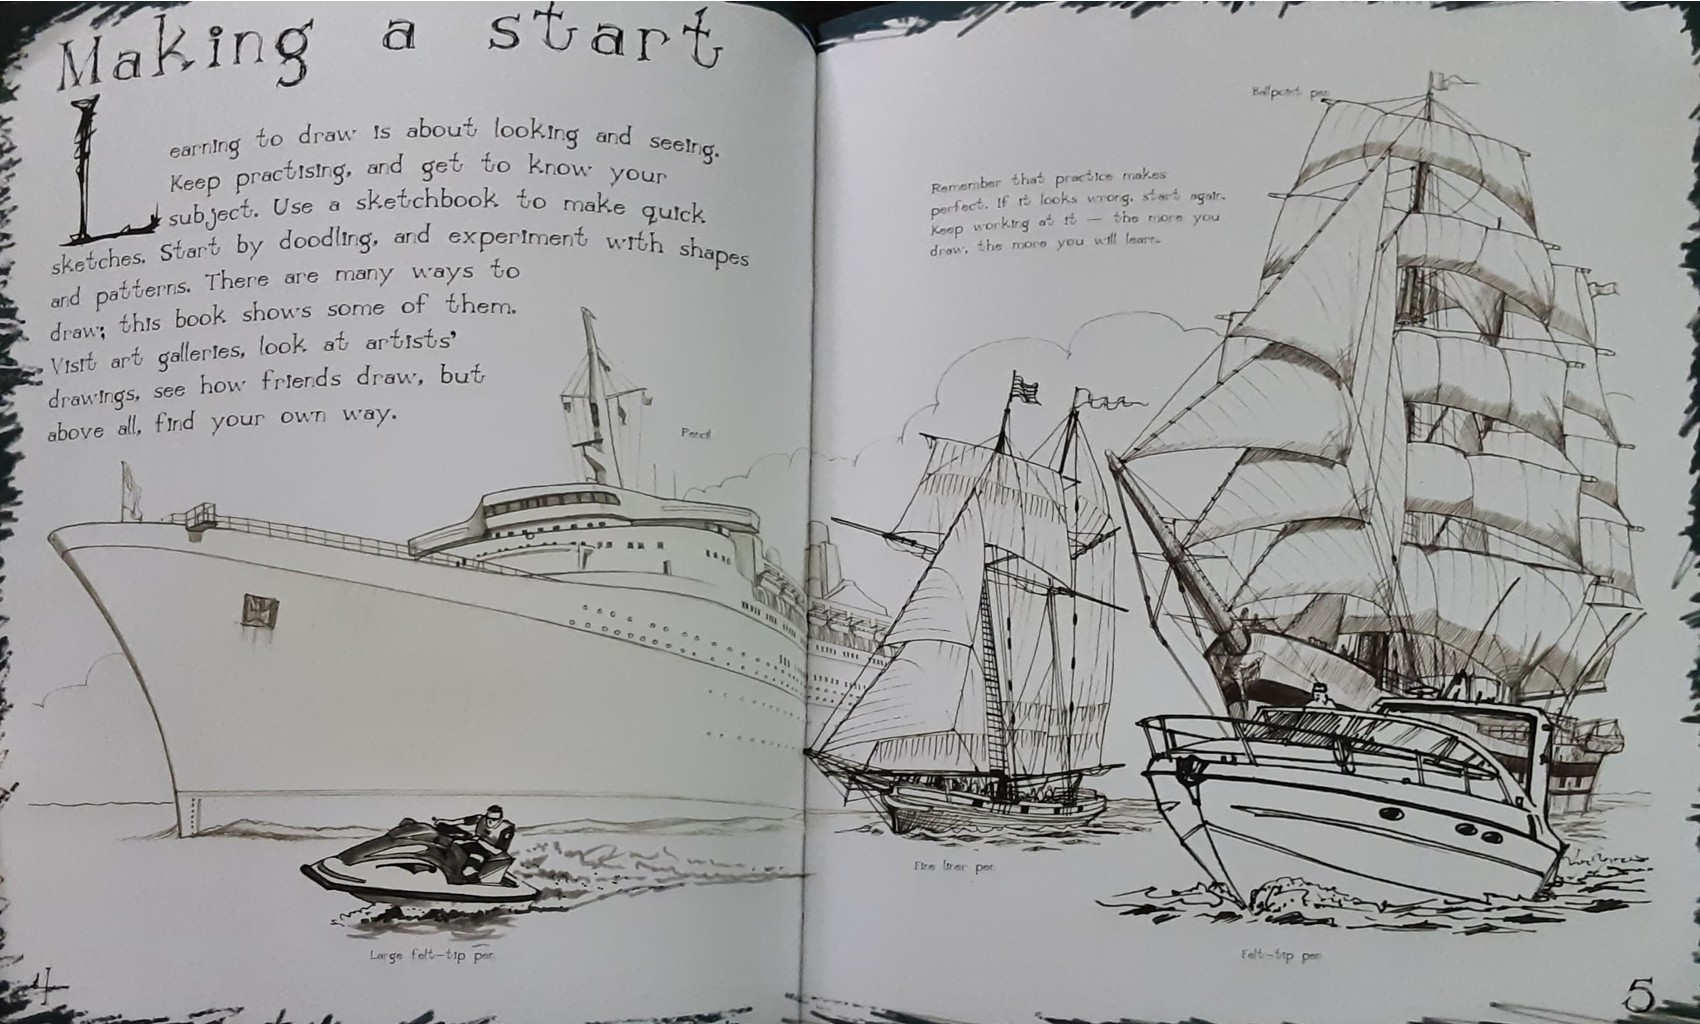 Making a start
Learning to draw is about looking and seeing.
Keep practising, and get to know your
subject. Use a sketchbook to make quick
sketches. Start by doodling, and experiment with shapes
and patterns. There are many ways to
draw; this book shows some of them.
Visit art galleries, look at artists'
drawings, see how friends draw, but
above all, find your own way.
Pencil
Large felt-tip pen
4
Ballpoint pen
Remember that practice makes
perfect. If it looks wrong, start again.
Keep working at it — the more you
draw, the more you will learn.
Fine liner pen
Felt-tip pen
5